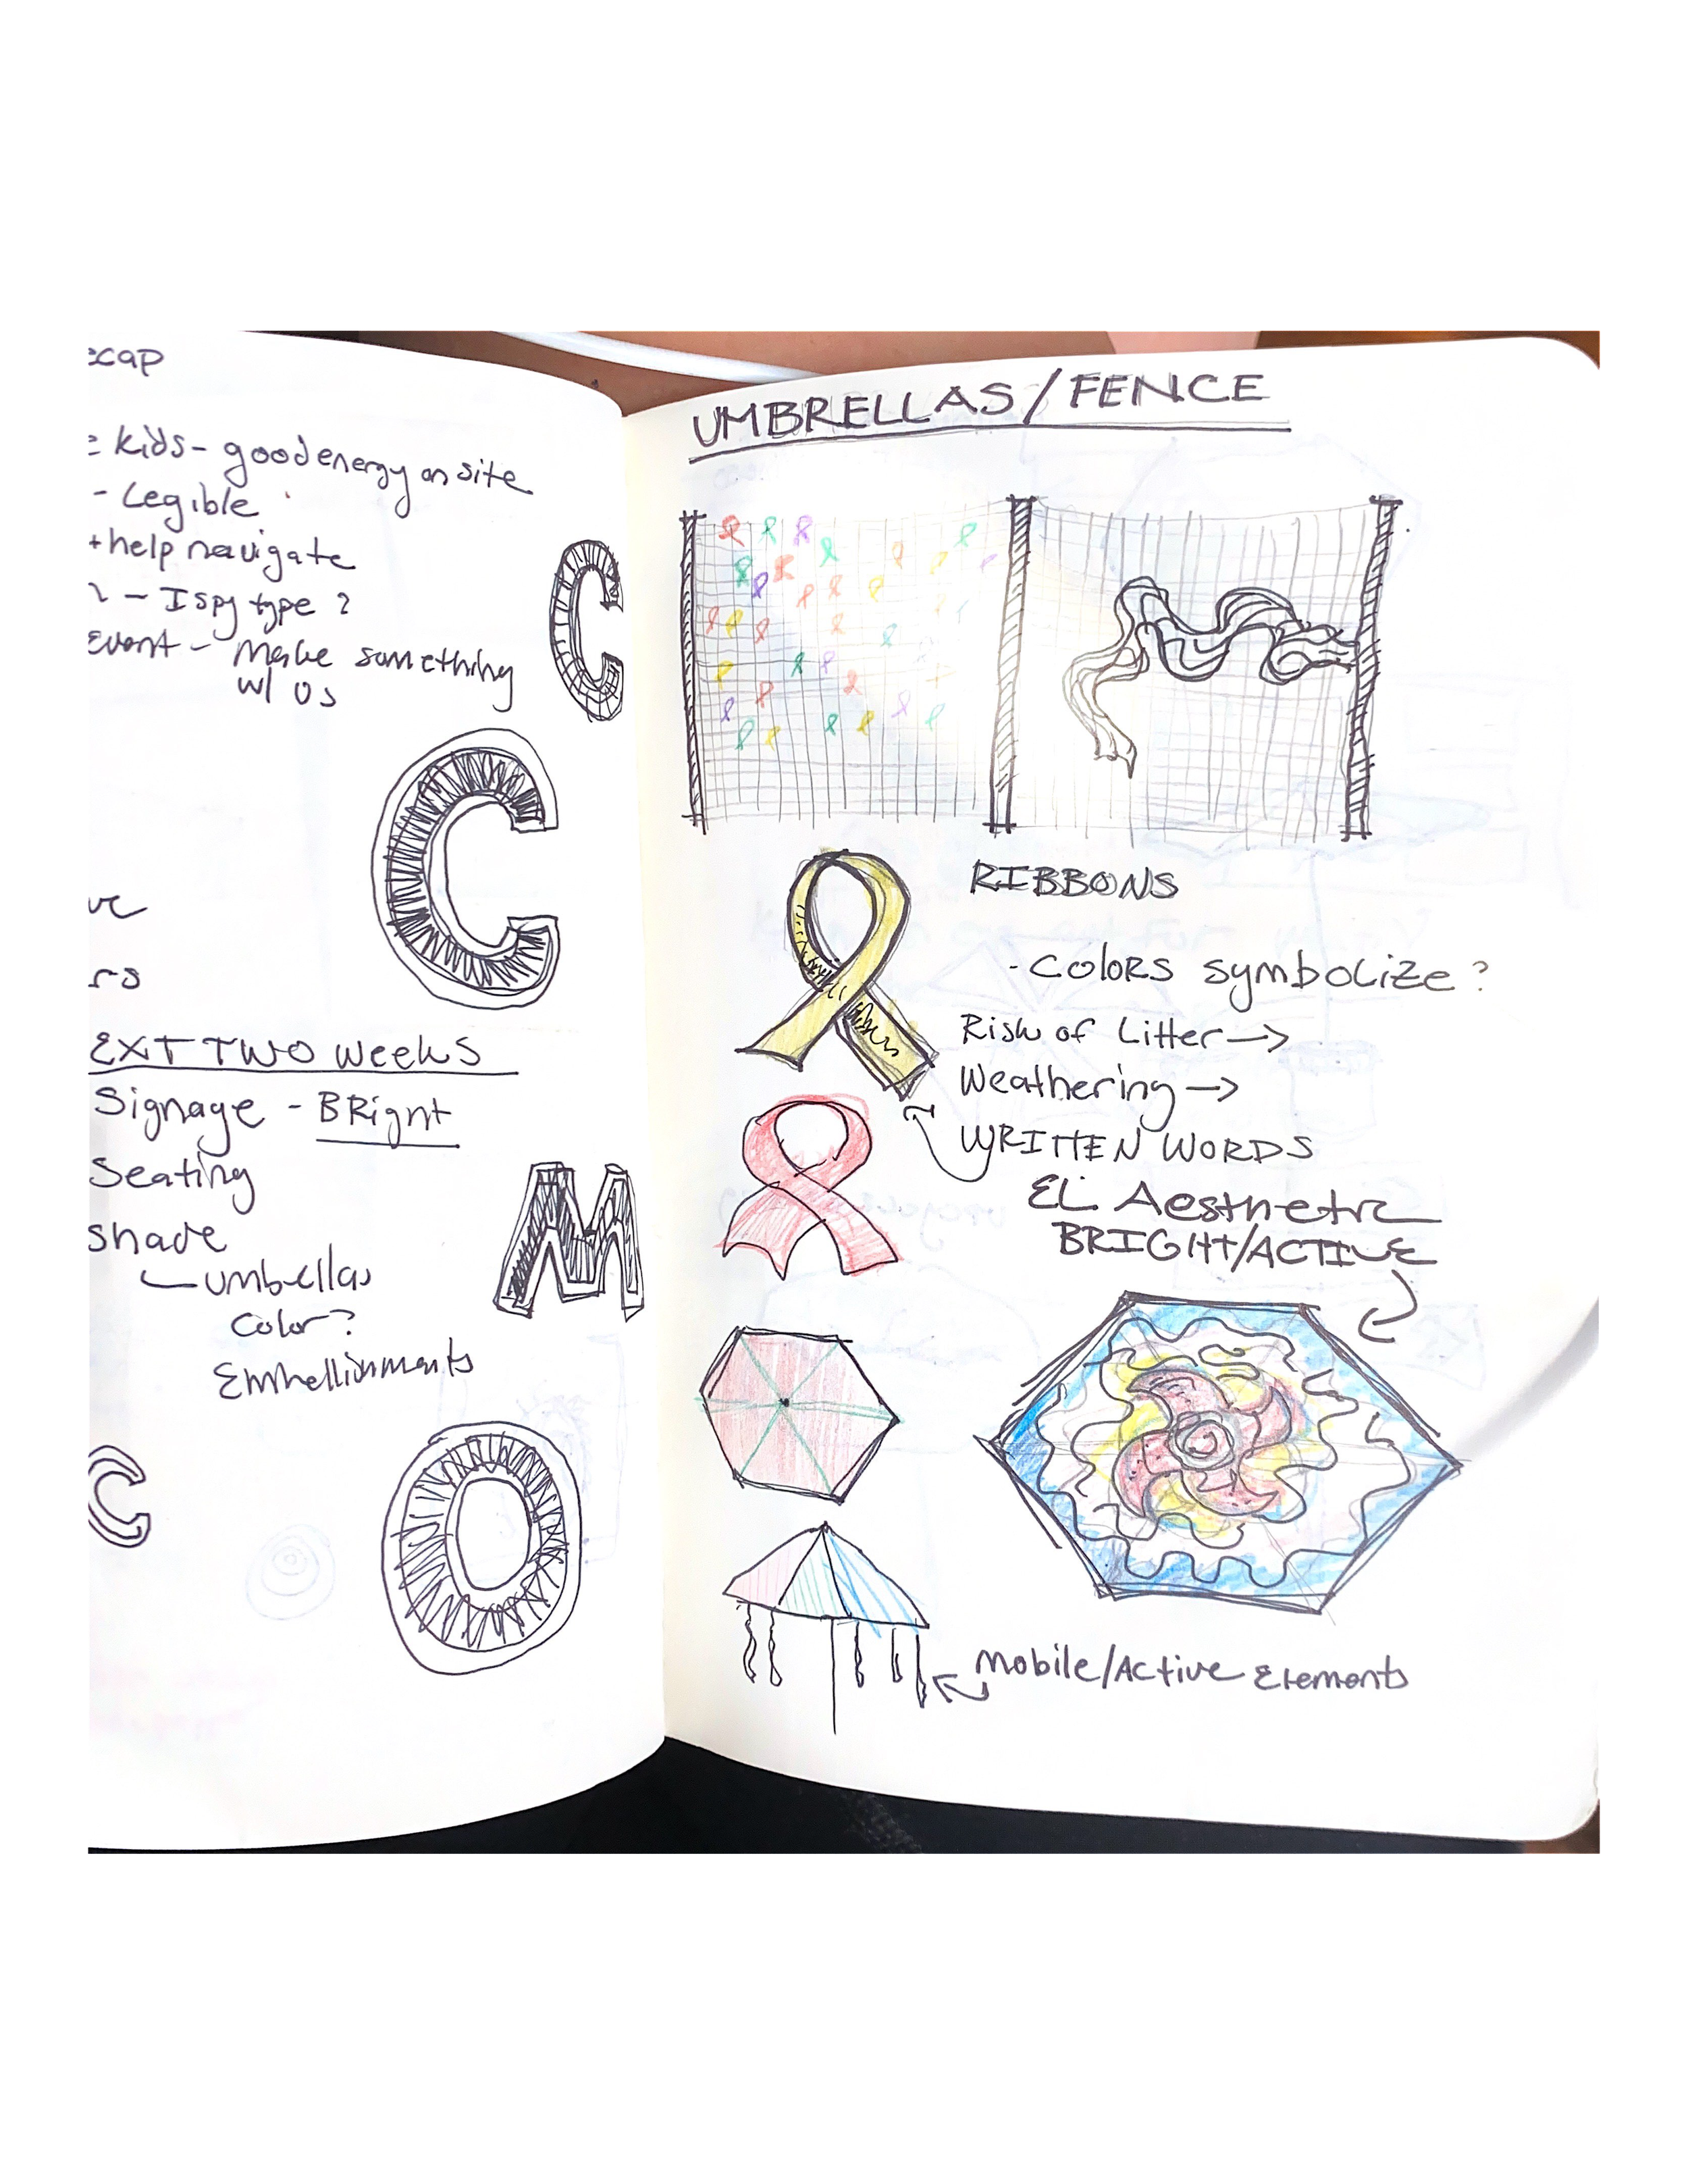 ecap
e kids - good energy on site
- Legible
+ help navigate
- I spy type ?
Event - Make something
w/ us
C
C
ve
rs
EXT TWO WEEKS
Signage - BRight
Seating
shade
umbrellas
color?
Embellishments
M
C
O
UMBRELLAS/FENCE
RIBBONS
- COLORS symbolize ?
Risk of Litter →
Weathering →
WRITTEN WORDS
EL Aesthetic
BRIGHT/ACTIVE
Mobile/Active Elements